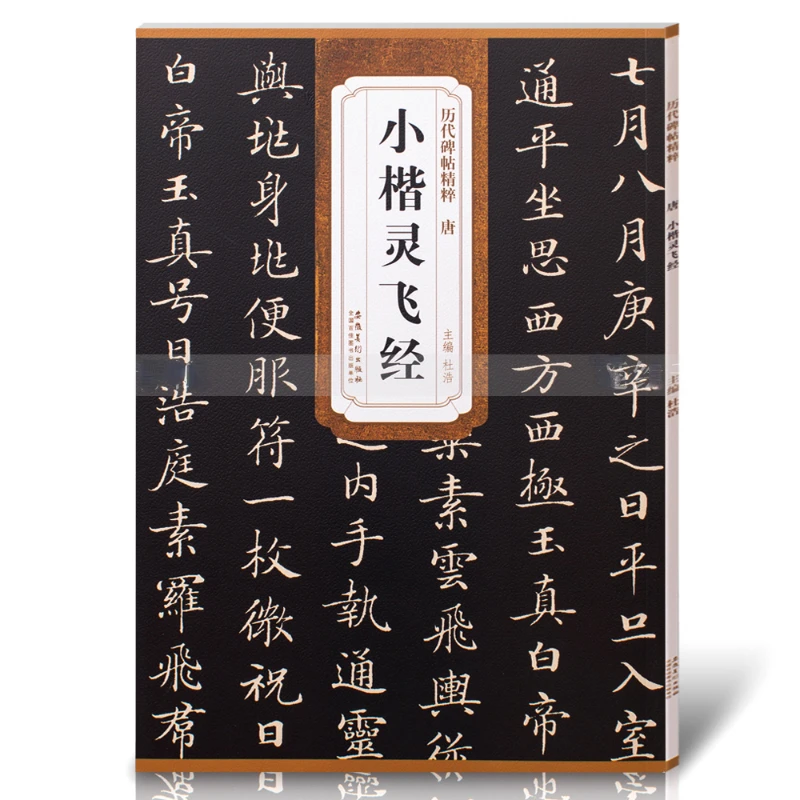 七月八月庚辛之日平旦入室
通平坐思西方西極玉真白帝
素雲飛輿從
内手執通靈
與地身地便服符一枚微祝日
白帝玉真号曰浩庭素羅飛帬
历代碑帖精粹 唐
小楷灵飞经
主编 杜浩
安徽美术出版社
全国百佳图书出版单位
历代碑帖精粹 唐 小楷灵飞经 主编 杜浩